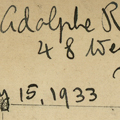 Adolphe R
48 We
15, 1933